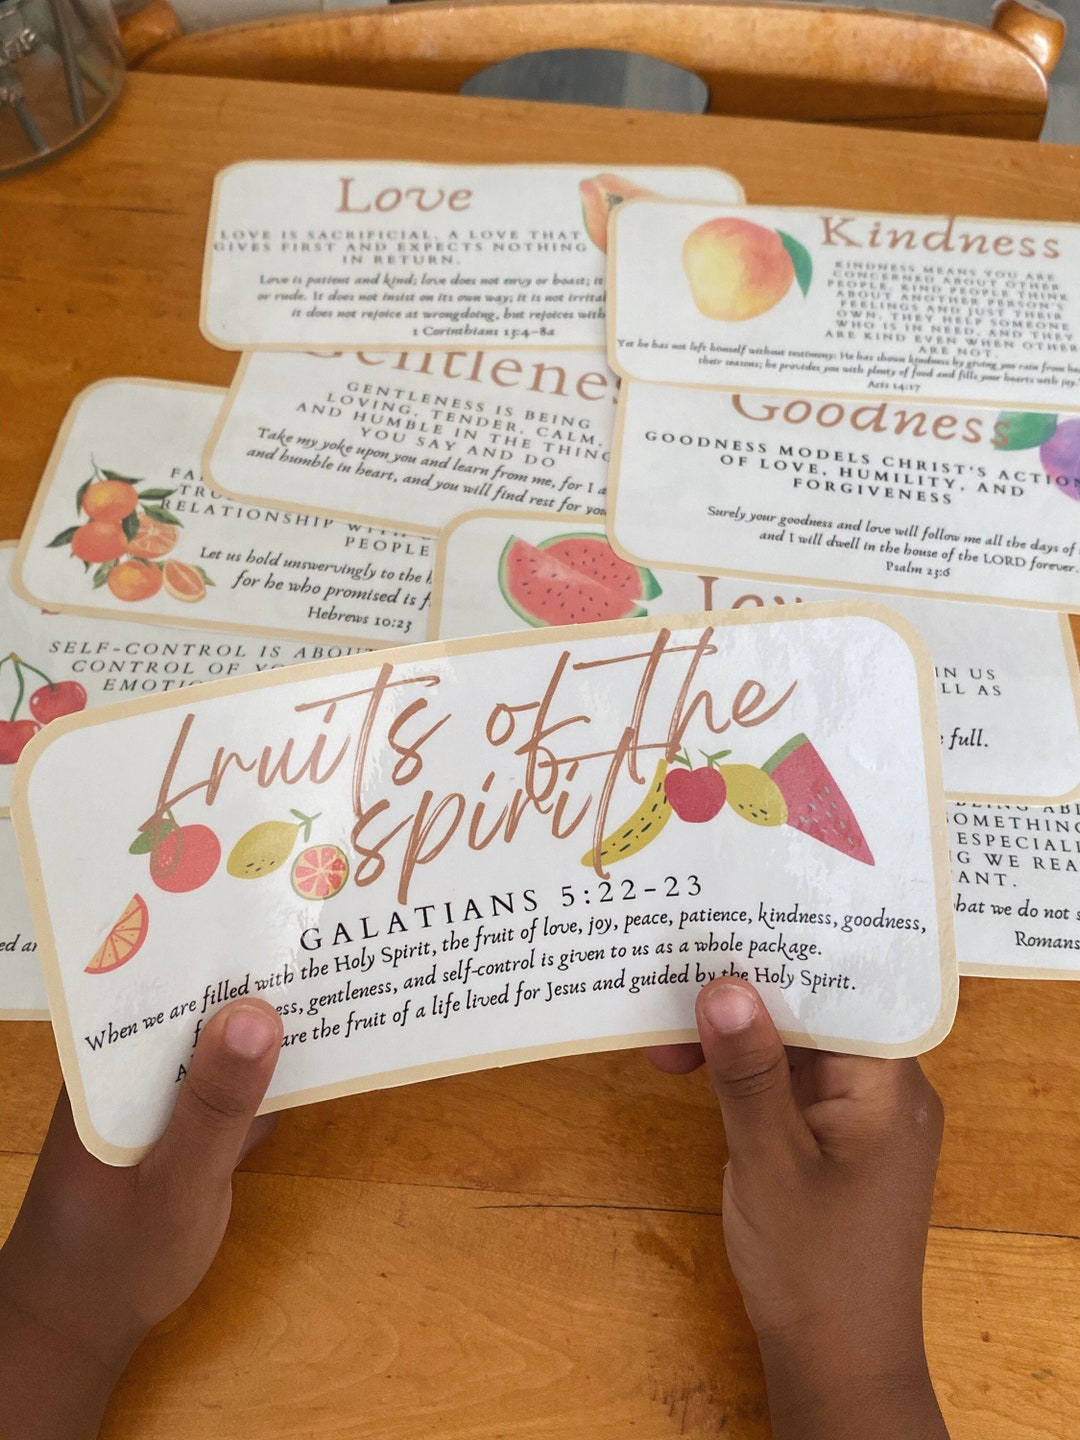 Love
LOVE IS SACRIFICIAL, A LOVE THAT
GIVES FIRST AND EXPECTS NOTHING
IN RETURN.
Love is patient and kind; love does not envy or boast; it
or rude. It does not insist on its own way; it is not
it does not rejoice at wrongdoing, but rejoices with
1 Corinthians 13:4-8a
Kindness
KINDNESS MEANS YOU ARE
CONCERNED ABOUT OTHER
PEOPLE. KIND PEOPLE THINK
ABOUT ANOTHER PERSON'S
FEELINGS AND NOT JUST THEIR
OWN, THEY HELP SOMEONE
WHO IS IN NEED, AND THEY
ARE KIND EVEN WHEN OTHERS
ARE NOT.
Yet he has not left himself without testimony: He has shown kindness by giving you rain from
their seasons; he provides you with plenty of food and fills your hearts with joy."
Acts 14:17
Gentleness
GENTLENESS IS BEING
LOVING, TENDER, CALM,
AND HUMBLE IN THE THING
YOU SAY AND DO
Take my yoke upon you and learn from me, for I a
and humble in heart, and you will find rest for you
Goodness
GOODNESS MODELS CHRIST'S ACTION
OF LOVE, HUMILITY, AND
FORGIVENESS
Surely your goodness and love will follow me all the days of
and I will dwell in the house of the LORD forever.
Psalm 23:6
FA
TRU
RELATIONSHIP WITH
PEOPLE
Let us hold unswervingly to the h
for he who promised is f
Hebrews 10:23
Joy
IN US
LL AS
full.
SELF-CONTROL IS ABOUT
CONTROL OF YO
EMOTIO
BEING ABL
SOMETHING
ESPECIALL
G WE REA
ANT.
hat we do not s
Romans
ed an
fruits of the
spirit
GALATIANS 5:22-23
When we are filled with the Holy Spirit, the fruit of love, joy, peace, patience, kindness, goodness,
f ess, gentleness, and self-control is given to us as a whole package.
A are the fruit of a life lived for Jesus and guided by the Holy Spirit.